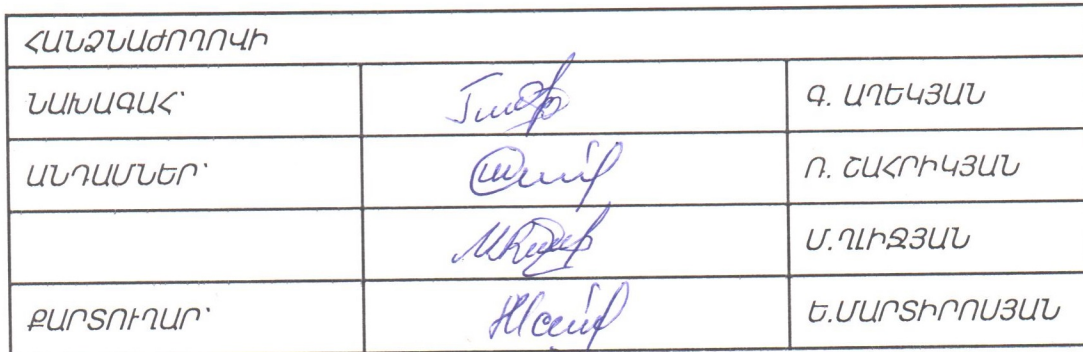 ՀԱՆՁՆԱԺՈՂՈՎԻ
ՆԱԽԱԳԱՀ՝ Գ. ԱՂԵԿՅԱՆ
ԱՆԴԱՄՆԵՐ՝ Ռ. ՇԱՀՐԻԿՅԱՆ
Մ.ՂԼԻՋՅԱՆ
ՔԱՐՏՈՒՂԱՐ՝ Ե.ՄԱՐՏԻՐՈՍՅԱՆ